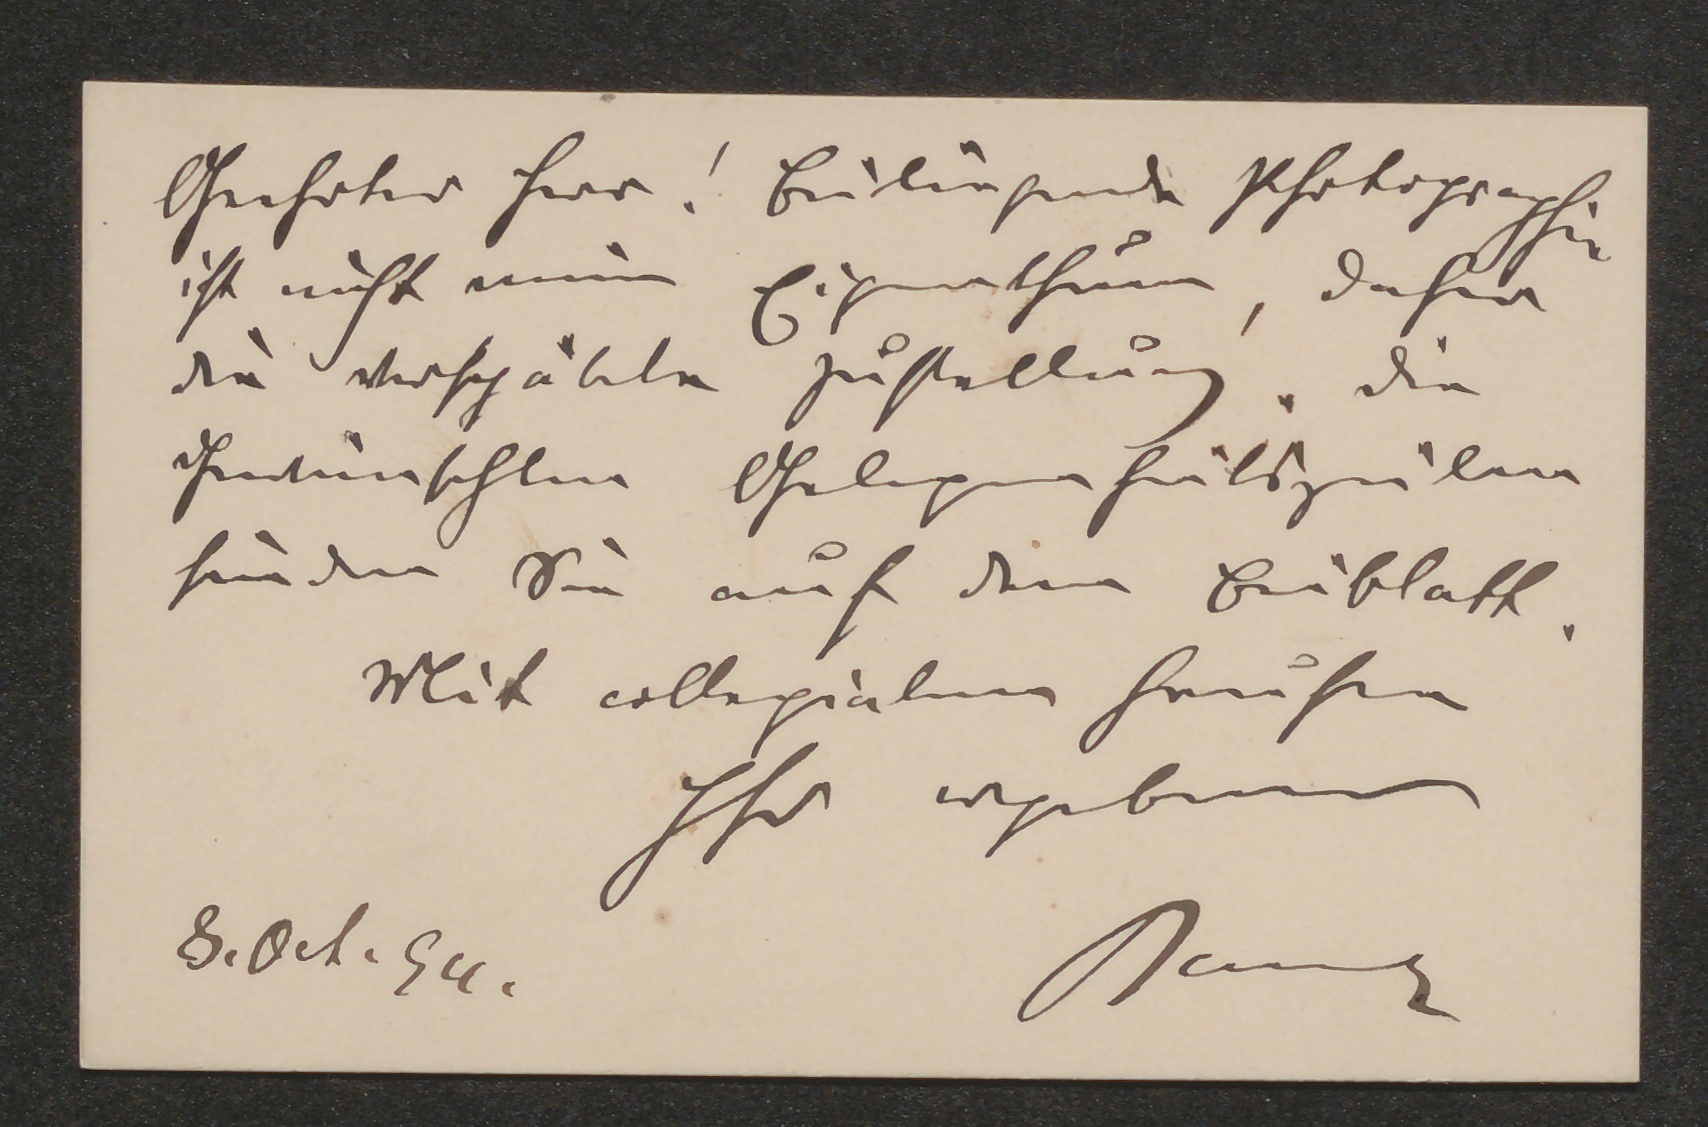 Geehrter Herr! Beiliegende Photographie
ist nicht mein Eigenthum, daher
die verspätete Zustellung. Die
gewünschten Gelegenheitszeilen
finden Sie auf dem Beiblatt.
Mit collegialen Grüßen
Ihr ergebener
8. Oct. 94.